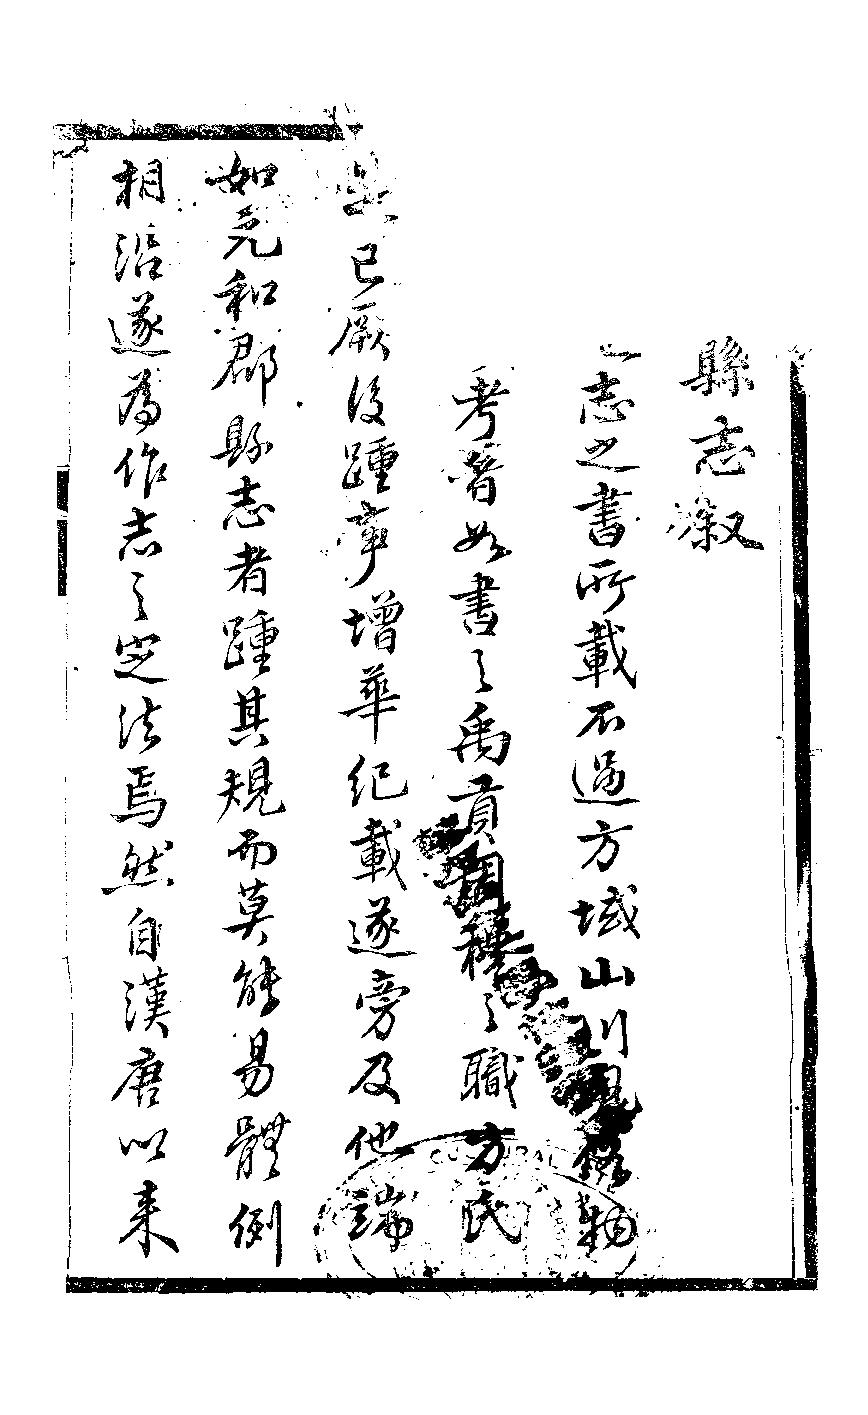 縣志叙
志之書所載不過方域山川風俗
考如書之禹貢周禮之職方氏
已厥後踵事增華紀載遂旁及他端
如元和郡縣志者踵其規而莫能易體例
相沿遂為作志之定法焉然自漢唐以来